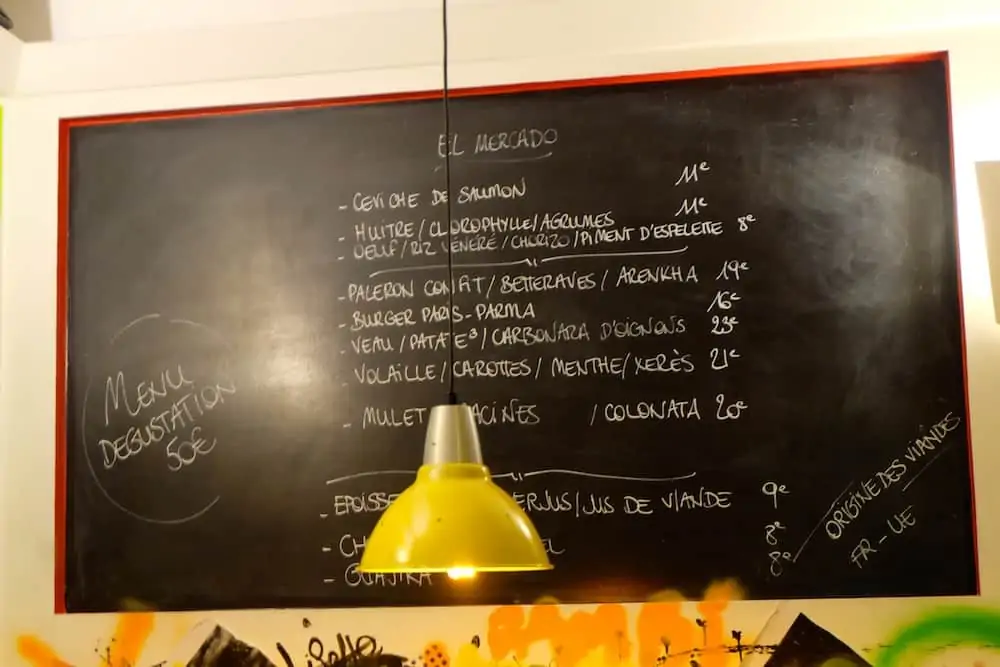 EL MERCADO
- CEVICHE DE SAUMON 11€
- HUITRE / CLOROPHYLLE / AGRUMES 11€
- OEUF / RIZ VÉNÉRÉ / CHORIZO / PIMENT D'ESPELETTE 8€
- PALERON CONFIT / BETTERAVES / ARENKHA 19€
- BURGER PARIS-PARMA 16€
- VEAU / PATATE³ / CARBONARA D'OIGNONS 23€
- VOLAILLE / CAROTTES / MENTHE / XERÈS 21€
- MULET / COLONATA 20€
MENU
DEGUSTATION
50€
- JUS DE VIANDE 9€
8€
- GUAJIRA 8€
ORIGINE DES VIANDES
FR - UE